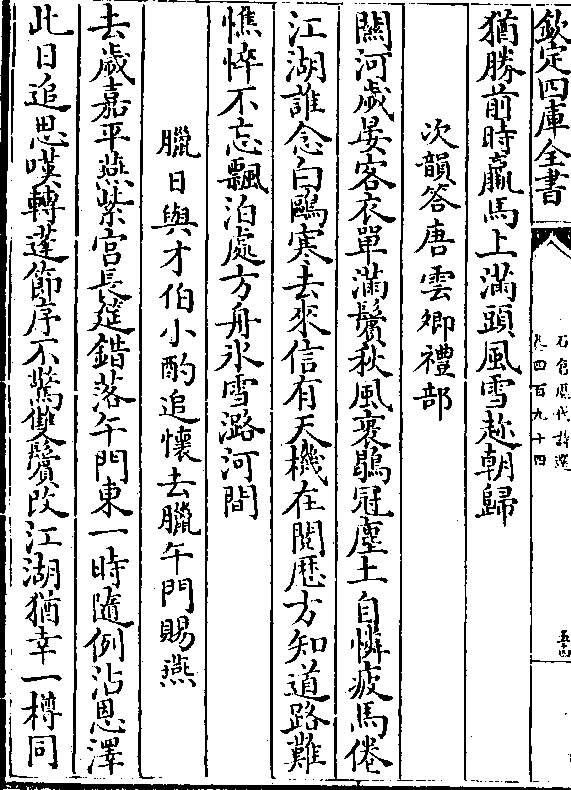 欽定四庫全書
石倉歷代詩選
卷四百九十四
五古
猶勝前時羸馬上滿頭風雪趂朝歸
次韻答唐雲卿禮部
關河歲晏客衣單滿鬢秋風裹鶡冠塵土自憐疲馬倦
江湖誰念白鷗寒去來信有天機在閱歷方知道路難
憔悴不忘飄泊處方舟氷雪潞河間
臘日與才伯小酌追懷去臘午門賜燕
去歲嘉平燕紫宫長筵錯落午門東一時隨例沾恩澤
此日追思嘆轉蓬節序不驚雙鬢改江湖猶幸一樽同